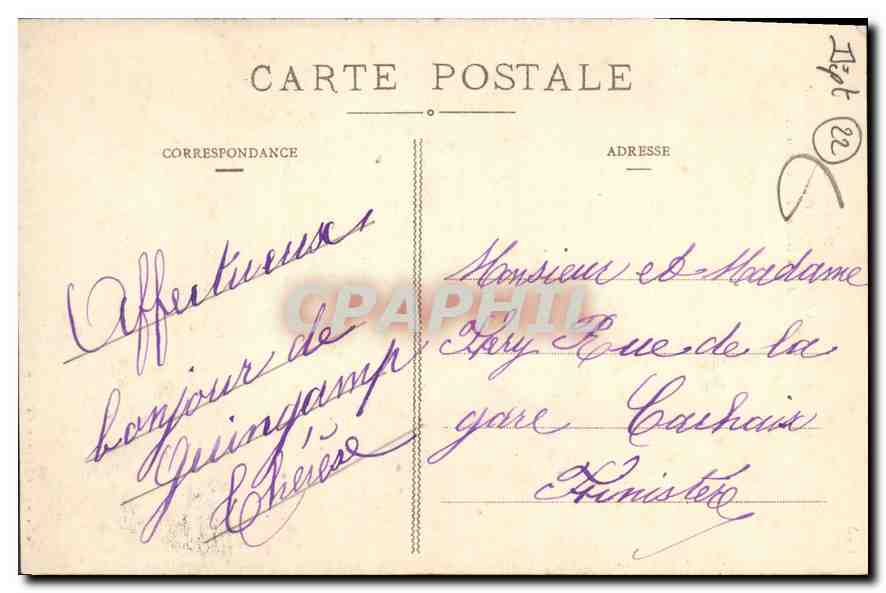 CARTE POSTALE
CORRESPONDANCE
ADRESSE
Dept
22
Affectueux
bonjour de
Guingamp
Thérèse
Monsieur et Madame
Féry Rue de la
gare Carhaix
Finistère
CPAPHIL